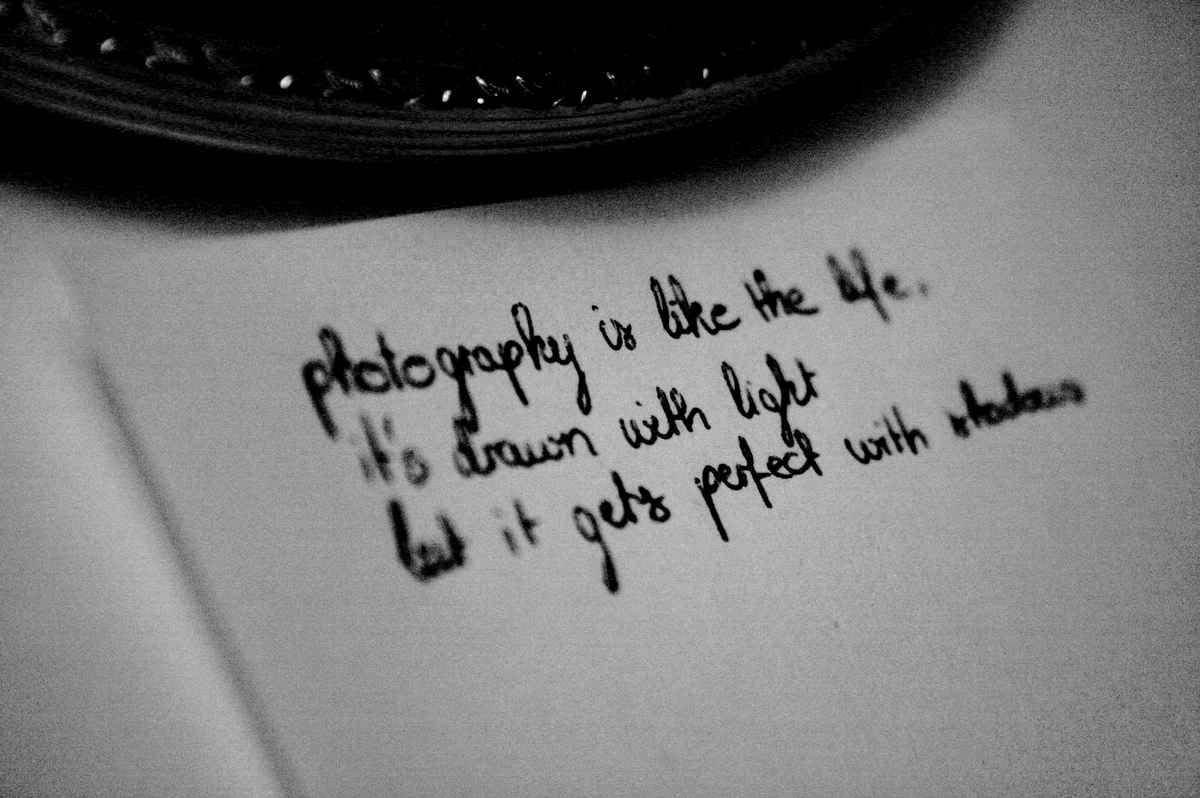 photography is like the life.
it's drawn with light
but it gets perfect with shadows